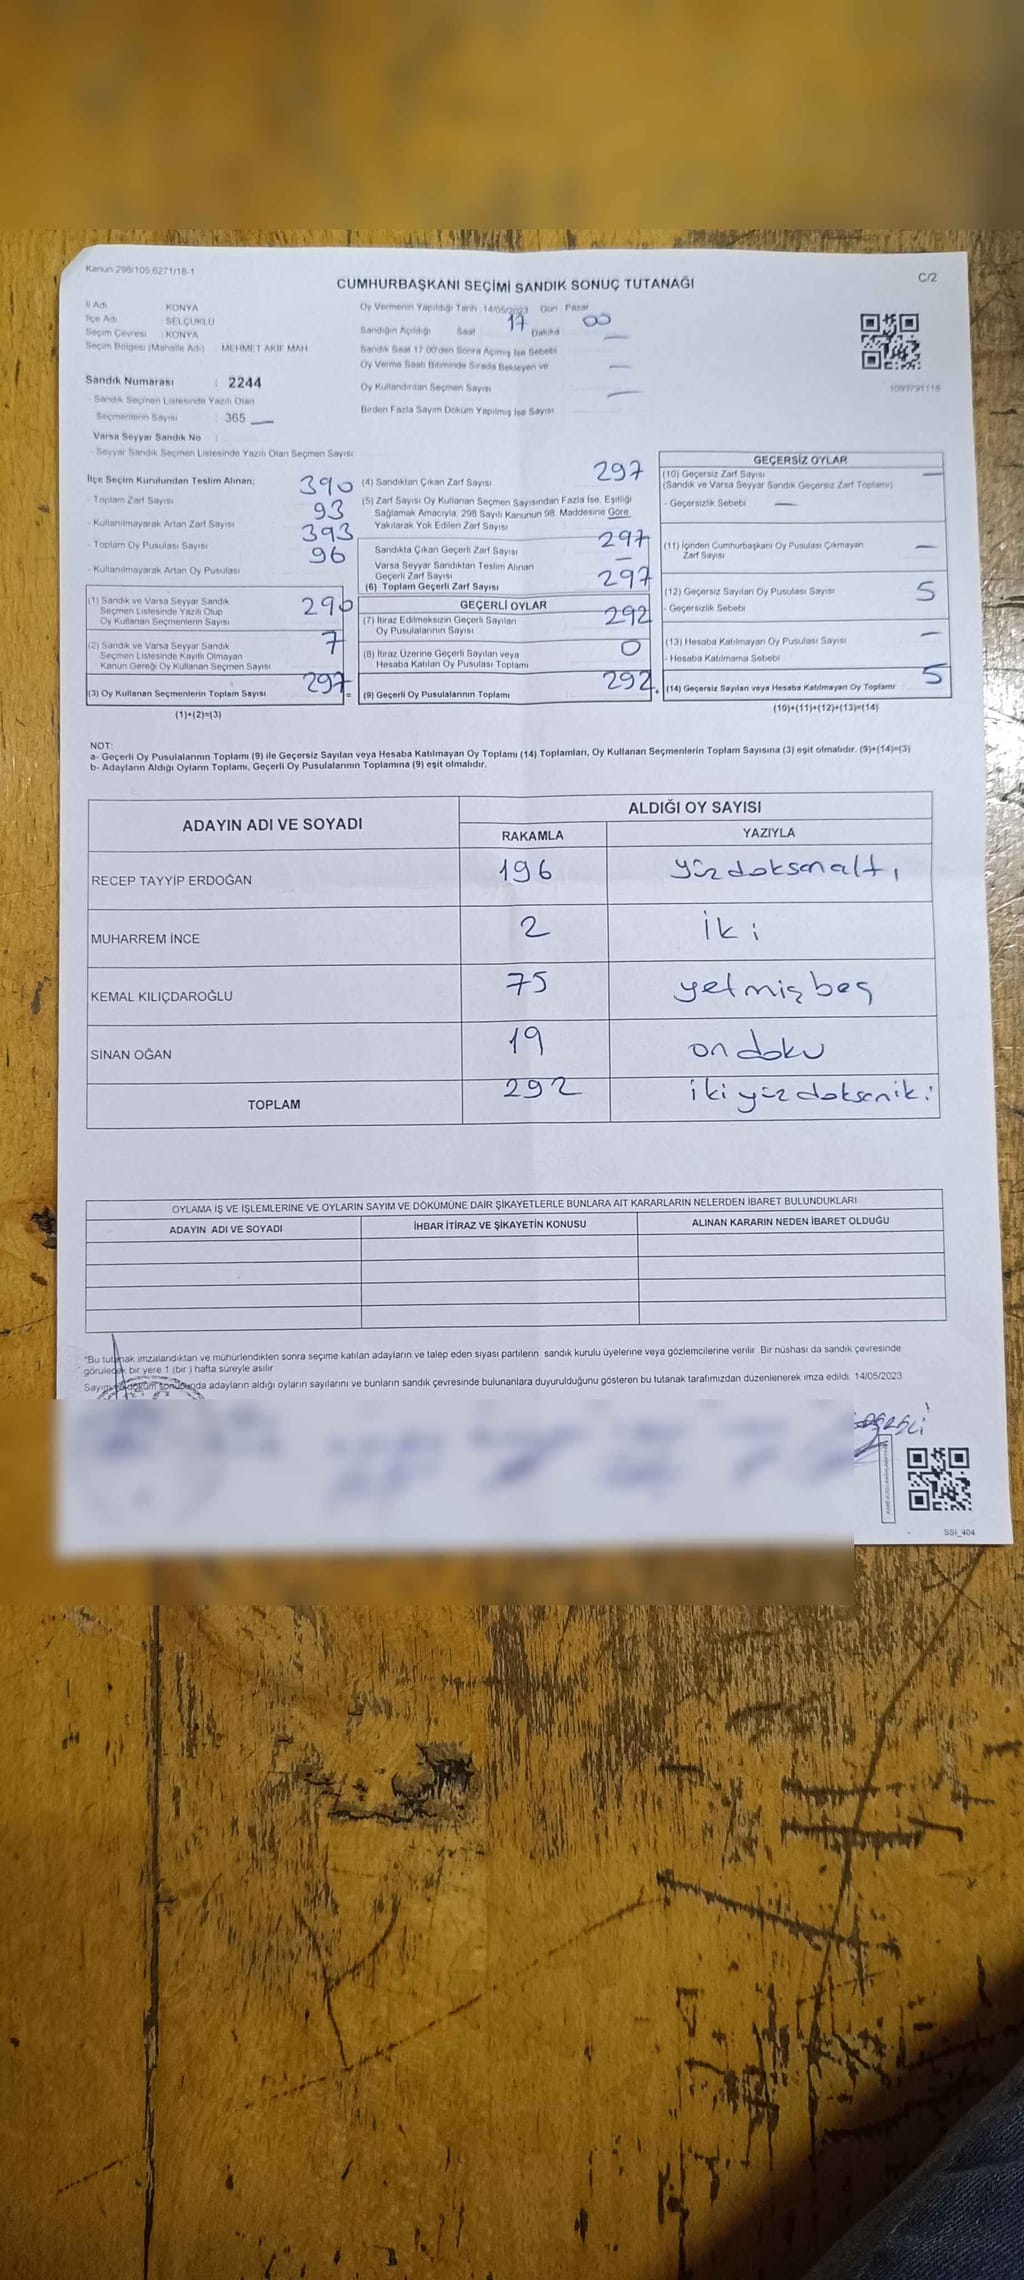 Kanun 298/105,6271/18-1
C/2
CUMHURBAŞKANI SEÇİMİ SANDIK SONUÇ TUTANAĞI
İl Adı : KONYA
İlçe Adı : SELÇUKLU
Seçim Çevresi : KONYA
Seçim Bölgesi (Mahalle Adı) : MEHMET AKİF MAH
Sandık Numarası : 2244
- Sandık Seçmen Listesinde Yazılı Olan
Seçmenlerin Sayısı : 365
Varsa Seyyar Sandık No :
- Seyyar Sandık Seçmen Listesinde Yazılı Olan Seçmen Sayısı
Oy Vermenin Yapıldığı Tarih 14/05/2023 Gün : Pazar
Sandığın Açıldığı Saat 17 Dakika 00
Sandık Saat 17.00'den Sonra Açımış İse Sebebi
Oy Verme Saati Bitiminde Sırada Bekleyen ve
Oy Kullandırılan Seçmen Sayısı
Birden Fazla Sayım Döküm Yapılmış İse Sayısı
1093791118
İlçe Seçim Kurulundan Teslim Alınan;
- Toplam Zarf Sayısı 390
- Kullanılmayarak Artan Zarf Sayısı 93
- Toplam Oy Pusulası Sayısı 393
- Kullanılmayarak Artan Oy Pusulası 96
(1) Sandık ve Varsa Seyyar Sandık
Seçmen Listesinde Yazılı Olup
Oy Kullanan Seçmenlerin Sayısı 290
(2) Sandık ve Varsa Seyyar Sandık
Seçmen Listesinde Kayıtlı Olmayan
Kanun Gereği Oy Kullanan Seçmen Sayısı 7
(3) Oy Kullanan Seçmenlerin Toplam Sayısı 297 =
(1)+(2)=(3)
(4) Sandıktan Çıkan Zarf Sayısı 297
(5) Zarf Sayısı Oy Kullanan Seçmen Sayısından Fazla İse, Eşitliği
Sağlamak Amacıyla, 298 Sayılı Kanunun 98. Maddesine Göre
Yakılarak Yok Edilen Zarf Sayısı
Sandıkta Çıkan Geçerli Zarf Sayısı 297
Varsa Seyyar Sandıktan Teslim Alınan
Geçerli Zarf Sayısı –
(6) Toplam Geçerli Zarf Sayısı 297
GEÇERLİ OYLAR
(7) İtiraz Edilmeksizin Geçerli Sayılan
Oy Pusulalarının Sayısı 292
(8) İtiraz Üzerine Geçerli Sayılan veya
Hesaba Katılan Oy Pusulası Toplamı 0
(9) Geçerli Oy Pusulalarının Toplamı 292
GEÇERSİZ OYLAR
(10) Geçersiz Zarf Sayısı –
(Sandık ve Varsa Seyyar Sandık Geçersiz Zarf Toplamı)
- Geçersizlik Sebebi –
(11) İçinden Cumhurbaşkanı Oy Pusulası Çıkmayan
Zarf Sayısı –
(12) Geçersiz Sayılan Oy Pusulası Sayısı 5
- Geçersizlik Sebebi
(13) Hesaba Katılmayan Oy Pusulası Sayısı –
- Hesaba Katılmama Sebebi
(14) Geçersiz Sayılan veya Hesaba Katılmayan Oy Toplamı 5
(10)+(11)+(12)+(13)=(14)
NOT:
a- Geçerli Oy Pusulalarının Toplamı (9) ile Geçersiz Sayılan veya Hesaba Katılmayan Oy Toplamı (14) Toplamları, Oy Kullanan Seçmenlerin Toplam Sayısına (3) eşit olmalıdır. (9)+(14)=(3)
b- Adayların Aldığı Oyların Toplamı, Geçerli Oy Pusulalarının Toplamına (9) eşit olmalıdır.
ADAYIN ADI VE SOYADI ALDIĞI OY SAYISI
RAKAMLA YAZIYLA
RECEP TAYYİP ERDOĞAN 196 yüzdoksanaltı
MUHARREM İNCE 2 iki
KEMAL KILIÇDAROĞLU 75 yetmişbeş
SİNAN OĞAN 19 on doku
TOPLAM 292 iki yüz doksaniki
OYLAMA İŞ VE İŞLEMLERİNE VE OYLARIN SAYIM VE DÖKÜMÜNE DAİR ŞİKAYETLERLE BUNLARA AİT KARARLARIN NELERDEN İBARET BULUNDUKLARI
ADAYIN ADI VE SOYADI İHBAR İTİRAZ VE ŞİKAYETİN KONUSU ALINAN KARARIN NEDEN İBARET OLDUĞU
*Bu tutanak imzalandıktan ve mühürlendikten sonra seçime katılan adayların ve talep eden siyasi partilerin sandık kurulu üyelerine veya gözlemcilerine verilir. Bir nüshası da sandık çevresinde
görülecek bir yere 1 (bir ) hafta süreyle asılır
Sayım döküm sonucunda adayların aldığı oyların sayılarını ve bunların sandık çevresinde bulunanlara duyurulduğunu gösteren bu tutanak tarafımızdan düzenlenerek imza edildi. 14/05/2023
SSI_404